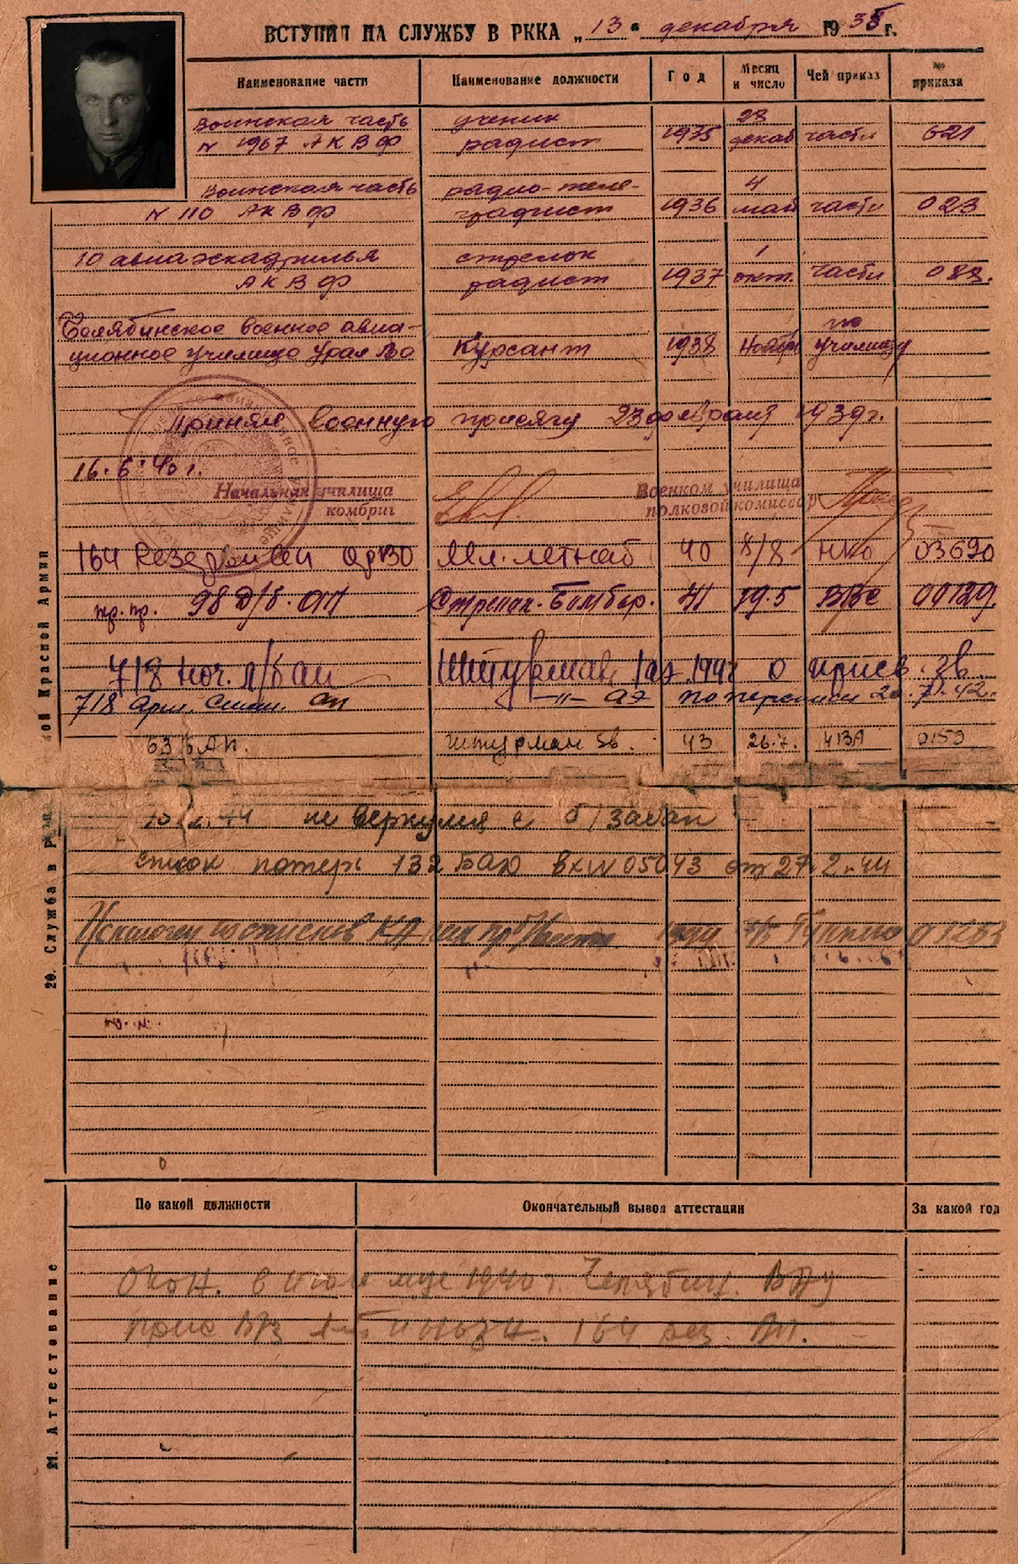 ВСТУПИЛ НА СЛУЖБУ В РККА „13" декабря 1935 г.
Наименование части Наименование должности Год Месяц и число Чей приказ № приказа
Воинская часть ученик 28
N 1967 АКВФ радист 1935 декаб части 621
Воинская часть радио-теле- 4
N 110 АКВФ графист 1936 май части 023
10 авиаэскадрилья стрелок 1
АКВФ радист 1937 окт. части 083.
Челябинское военное авиа- по
ционное училище УралВо Курсант 1938 Ноябрь училищу
Принял военную присягу 23 февраля 1939 г.
16.6.40 г.
Начальник училища Военком училища
комбриг полковой комиссар
164 Резерв. ОдВО Мл. летнаб 40 8/8 НКО 03620
пр.пр. 98 Д/б. АП Стрелк. Бомбар. 41 19.5 ВВС 00129
718 ноч. л/б ап Штурман 1942 о присв. зв
718 Арм. Смеш. ап —"— АЭ по переписи 20.7.42.
63 БАП. штурман зв. 43 26.7. 4ВА 0153
2.44 не вернулся с б/задан
список потерь 132 БАД вх N 05043 от 27.2.44
Исключен из списков КА
20. Служба в
ой Красной Армии
По какой должности Окончательный вывод аттестации За какой год
Окон. в 1940 г. Челябин. ВАУ
164 рез. АП.
21. Аттестование